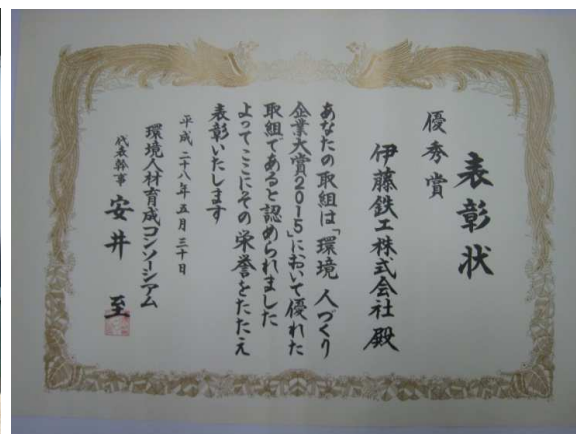 表彰状
優秀賞
伊藤鉄工株式会社 殿
あなたの取組は「環境 人づくり
企業大賞2015」において優れた
取組であると認められました
よってここにその栄誉をたたえ
表彰いたします
平成二十八年五月三十日
環境人材育成コンソーシアム
代表幹事 安井 至